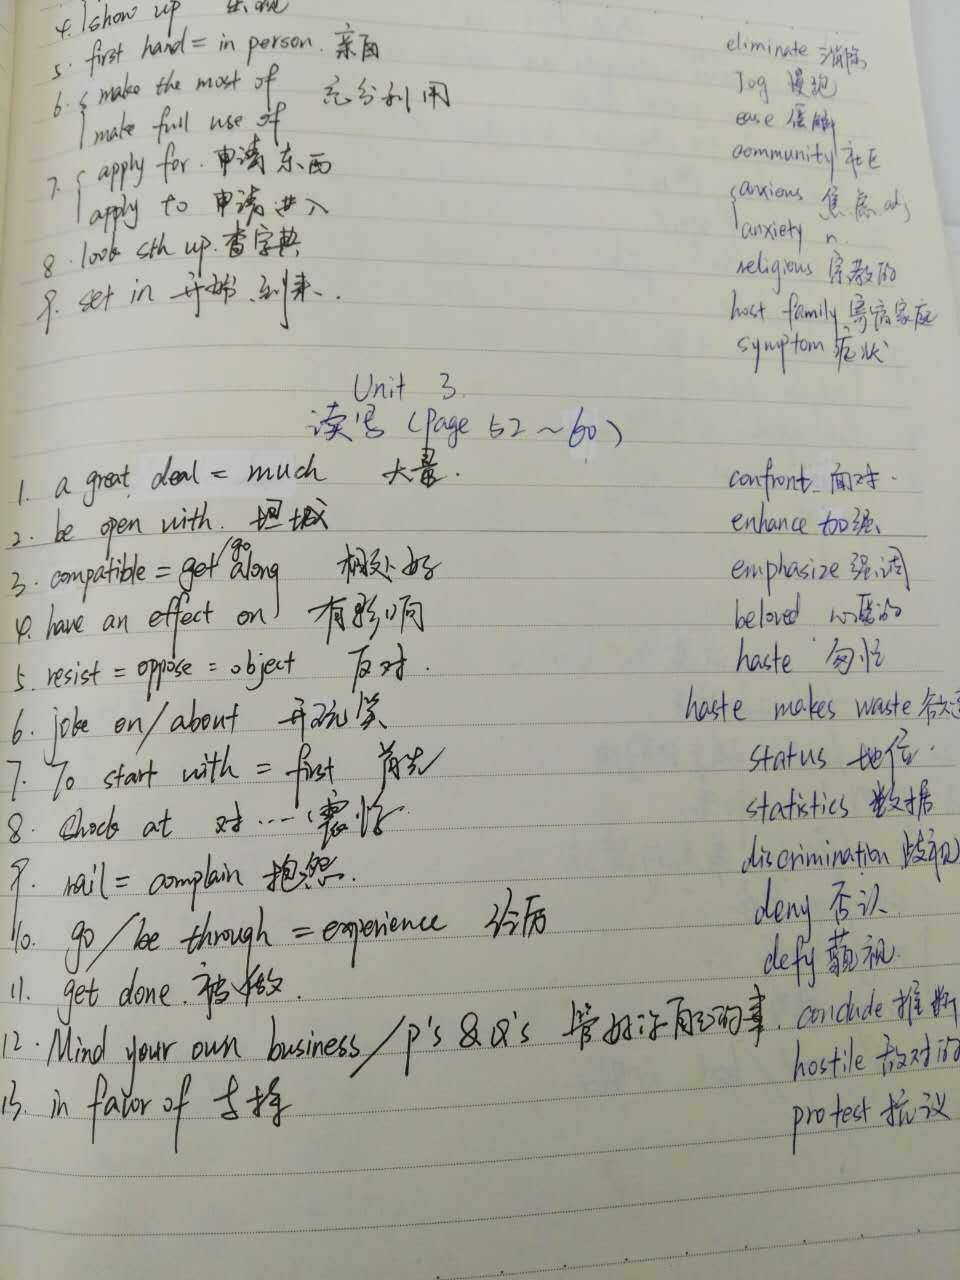 4. show up 出现
5. first hand = in person. 亲自
6. make the most of 充分利用
make full use of
7. apply for. 申请东西
apply to 申请进入
8. look sth up. 查字典
9. set in 开始、到来、.
eliminate 消除
Jog 慢跑
ease 缓解
community 社区
anxious 焦虑 adj
anxiety n.
religious 宗教的
host family 寄宿家庭
symptom 症状
Unit 3.
读写 (Page 52 ~ 60)
1. a great deal = much 大量.
2. be open with. 坦诚
3. compatible = get/go along 相处好
4. have an effect on 有影响
5. resist = oppose = object 反对.
6. joke on/about 开玩笑
7. To start with = first 首先
8. Shock at 对……震惊
9. rail = complain 抱怨.
10. go/be through = experience 经历
11. get done. 被做.
12. Mind your own business/P's & Q's 管好你自己的事.
13. in favor of 支持
confront 面对.
enhance 加强
emphasize 强调
beloved 心爱的
haste 匆忙
haste makes waste 欲速
status 地位.
statistics 数据
discrimination 歧视
deny 否认
defy 藐视.
conclude 推断
hostile 敌对的
protest 抗议